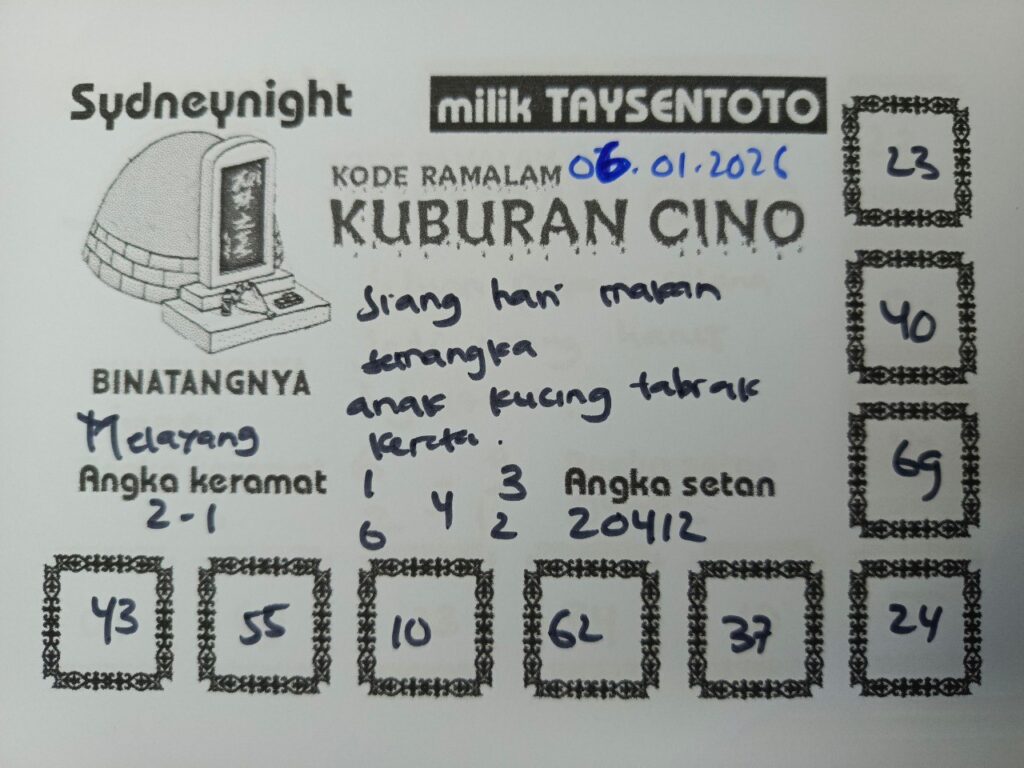 Sydneynight
milik TAYSENTOTO
KODE RAMALAM 06.01.2026
KUBURAN CINO
23
siang hari makan
semangka
anak kucing tabrak
kereta.
40
BINATANGNYA
Melayang
69
Angka keramat
2-1
1 3
4
6 2
Angka setan
20412
43 55 10 62 37 24